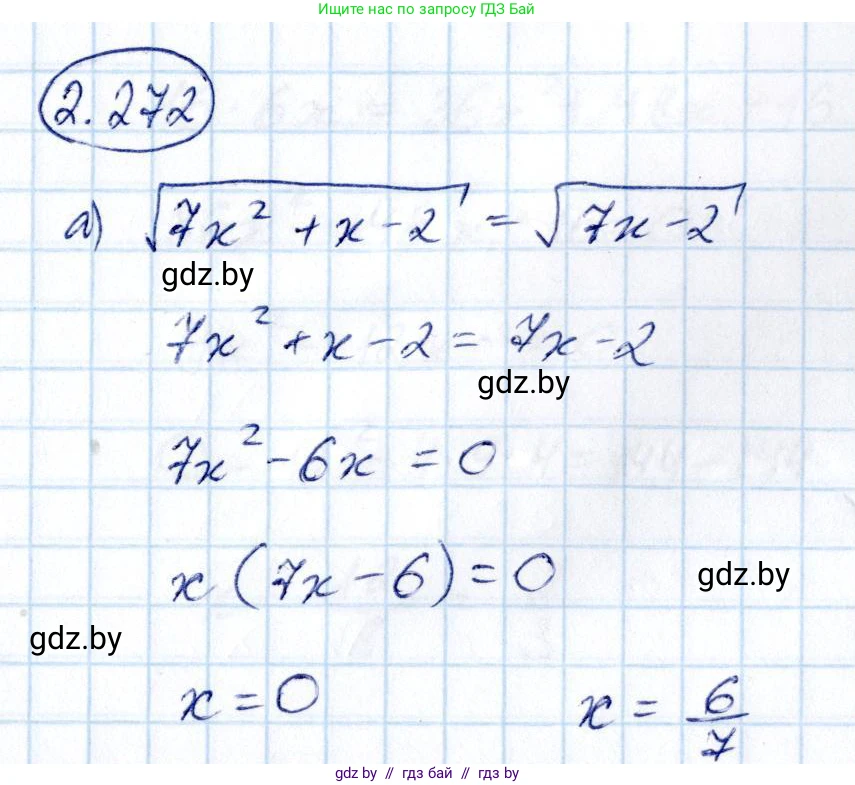 Ищите нас по запросу ГДЗ Бай
2.272
а) √(7x² + x - 2) = √(7x - 2)
gdz.by
7x² + x - 2 = 7x - 2
gdz.by
7x² - 6x = 0
x (7x - 6) = 0
gdz.by
gdz.by
x = 0 x = 6/7
gdz by // гдз бай // гдз by